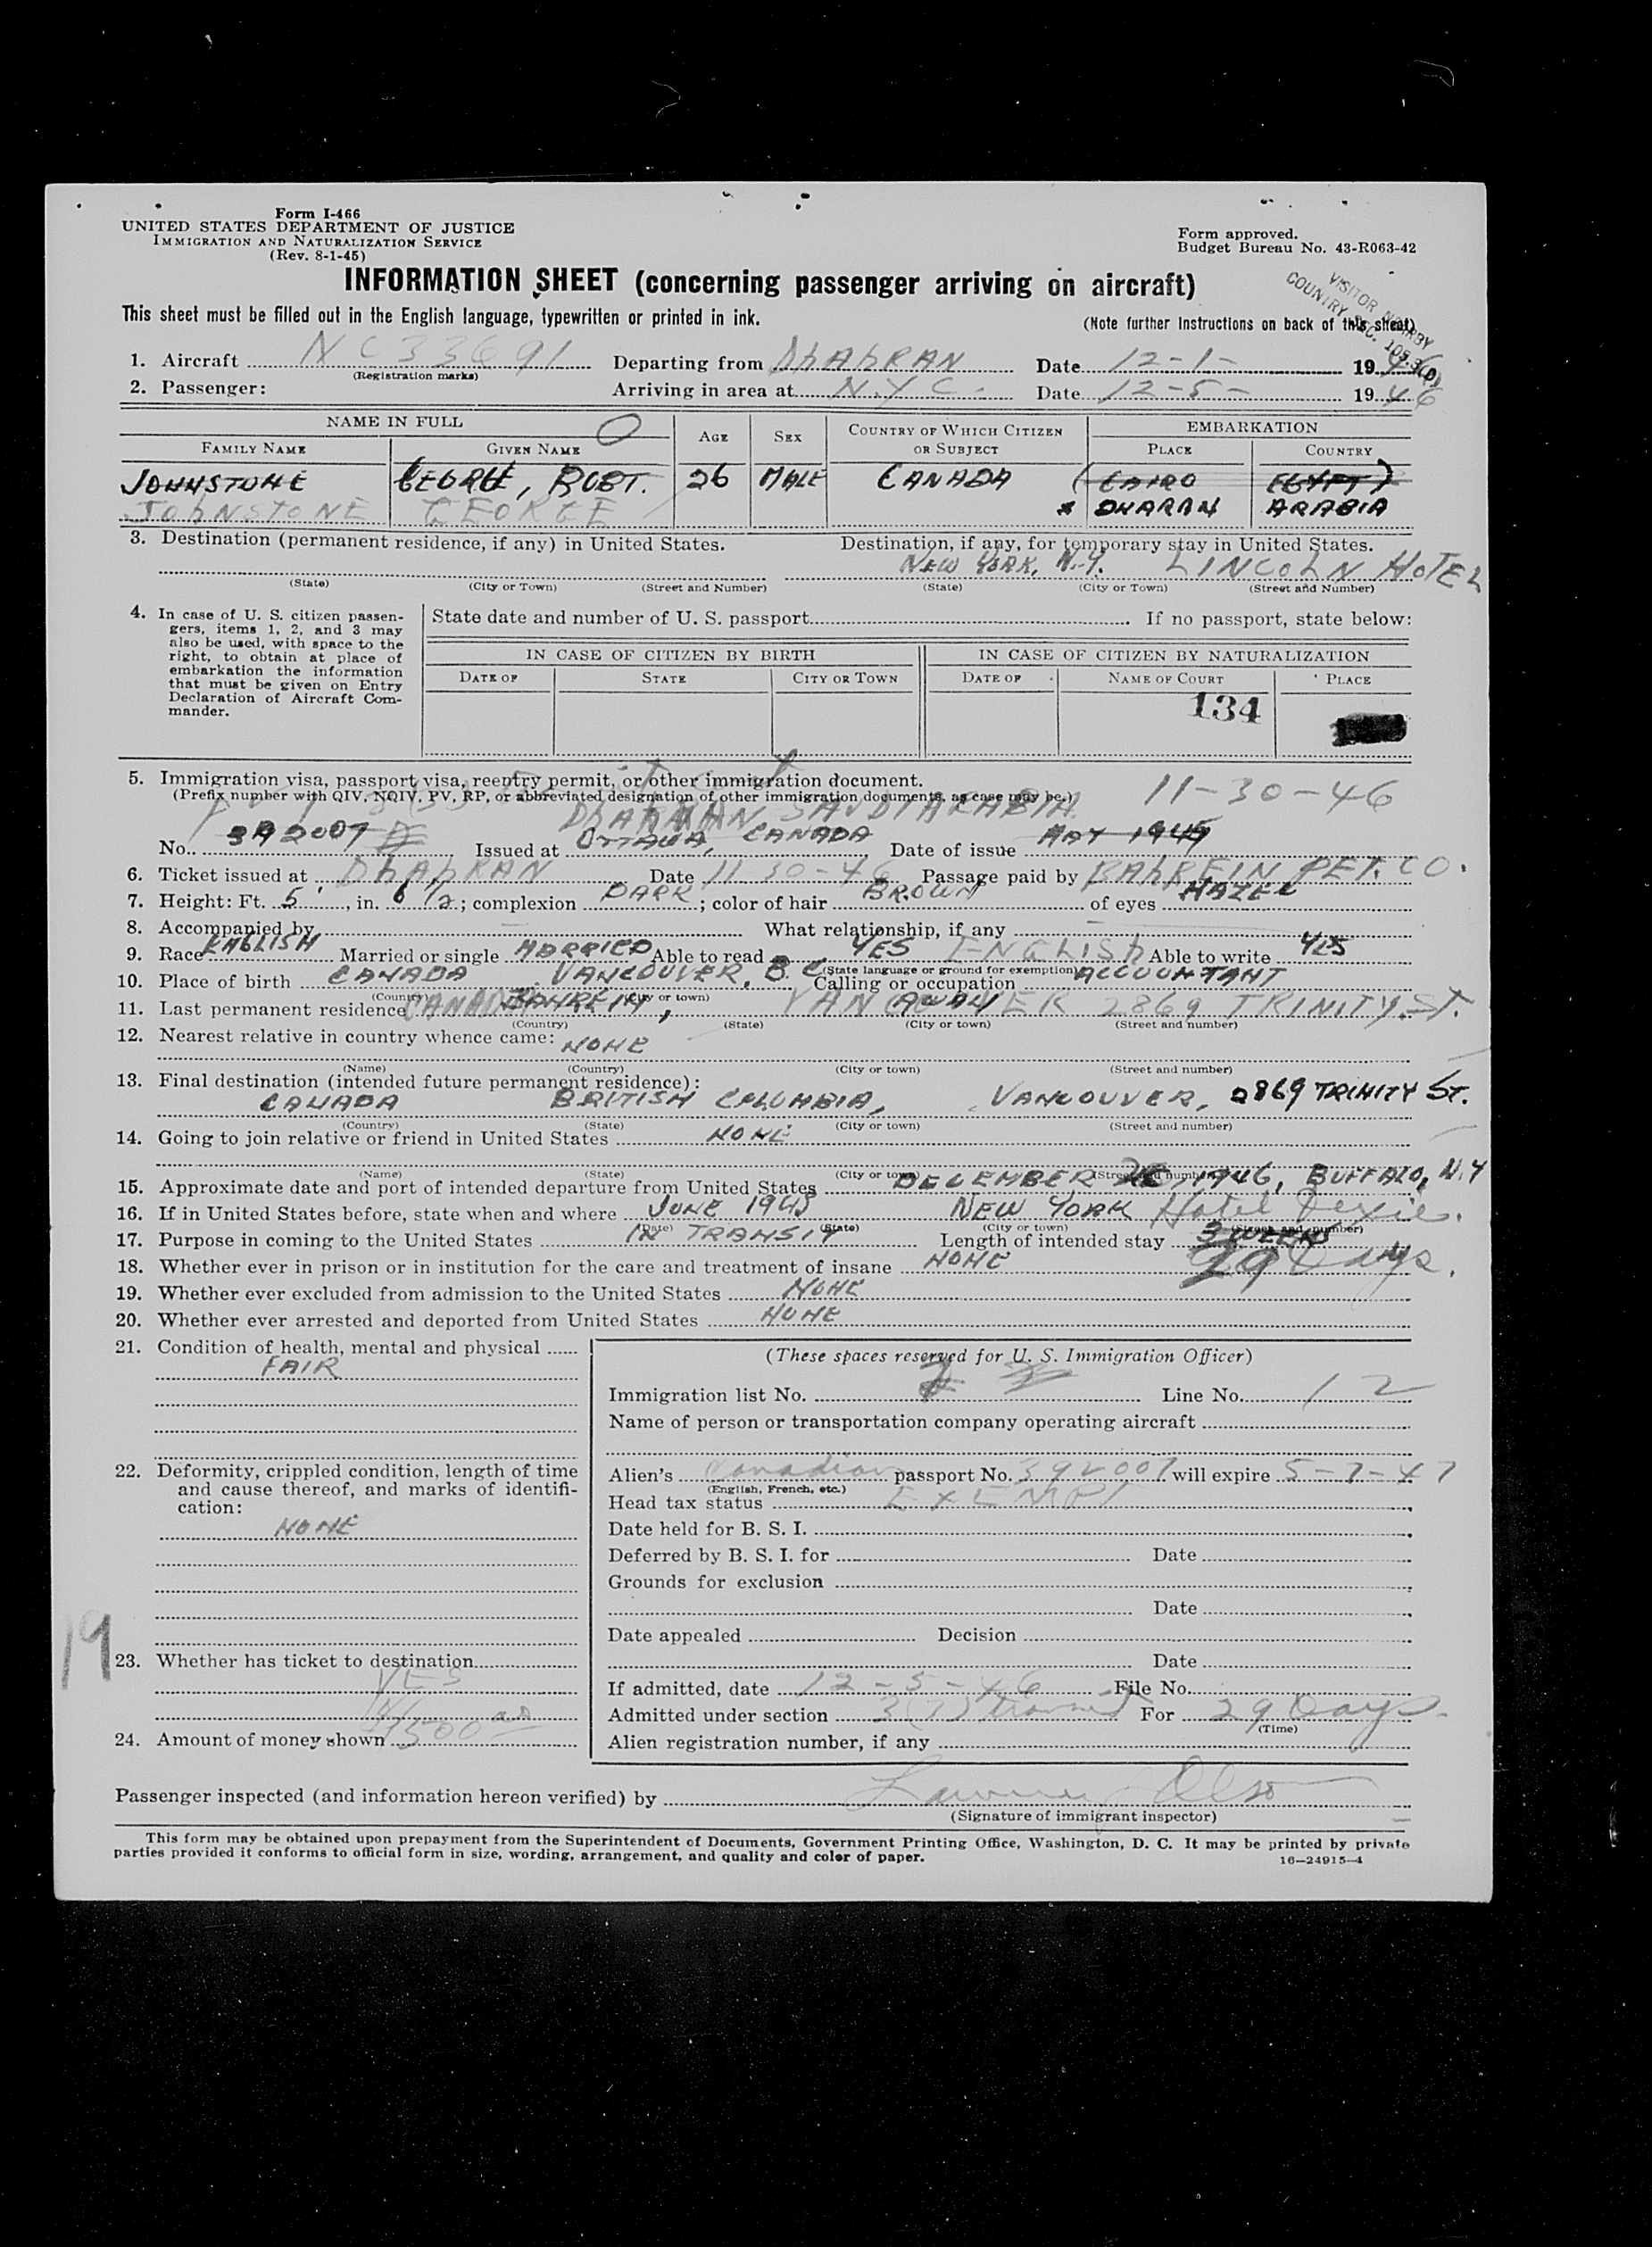 Form I-466
UNITED STATES DEPARTMENT OF JUSTICE
IMMIGRATION AND NATURALIZATION SERVICE
(Rev. 8-1-45)
Form approved.
Budget Bureau No. 43-R063-42
INFORMATION SHEET (concerning passenger arriving on aircraft)
VISITOR NEARBY
COUNTRY SEC.
This sheet must be filled out in the English language, typewritten or printed in ink.
(Note further Instructions on back of this sheet)
1. Aircraft NC33691 Departing from DhAhRAN Date 12-1- 1946
(Registration marks)
2. Passenger: Arriving in area at N.Y.C. Date 12-5- 1946
NAME IN FULL O AGE SEX COUNTRY OF WHICH CITIZEN OR SUBJECT EMBARKATION
FAMILY NAME GIVEN NAME PLACE COUNTRY
JOHNSTONE GEORGE, ROBT. 26 MALE CANADA (CAIRO EGYPT)
JOhNSTONE GEORGE * DHARAN ARABIA
3. Destination (permanent residence, if any) in United States. Destination, if any, for temporary stay in United States.
NEW YORK, N.Y. LINCOLN HOTEL
(State) (City or Town) (Street and Number) (State) (City or Town) (Street and Number)
4. In case of U. S. citizen passengers, items 1, 2, and 3 may also be used, with space to the right, to obtain at place of embarkation the information that must be given on Entry Declaration of Aircraft Commander.
State date and number of U. S. passport If no passport, state below:
IN CASE OF CITIZEN BY BIRTH IN CASE OF CITIZEN BY NATURALIZATION
DATE OF STATE CITY OR TOWN DATE OF NAME OF COURT PLACE
134
5. Immigration visa, passport visa, reentry permit, or other immigration document.
(Prefix number with QIV, NQIV, PV, RP, or abbreviated designation of other immigration documents, as case may be.) 11-30-46
DhAhRAN, SAUDI ARABIA
No. 392007 Issued at OTTAWA, CANADA Date of issue MAY 1945
6. Ticket issued at DhAhRAN Date 11-30-46 Passage paid by BAhREIN PET. CO.
7. Height: Ft. 5, in. 6 1/2; complexion DARK; color of hair BROWN of eyes HAZEL
8. Accompanied by — What relationship, if any —
9. Race ENGLISH Married or single MARRIED Able to read YES ENGLISh Able to write YES
(State language or ground for exemption)
10. Place of birth CANADA VANCOUVER, B.C. Calling or occupation ACCOUNTANT
(Country) (City or town)
11. Last permanent residence CANADA BAHREIN, VANCOUVER 2869 TRINITY ST.
(Country) (State) (City or town) (Street and number)
12. Nearest relative in country whence came: NONE
(Name) (Country) (City or town) (Street and number)
13. Final destination (intended future permanent residence):
CANADA BRITISH COLUMBIA, VANCOUVER, 2869 TRINITY ST.
(Country) (State) (City or town) (Street and number)
14. Going to join relative or friend in United States NONE
(Name) (State) (City or town) (Street and number)
15. Approximate date and port of intended departure from United States DECEMBER 26, 1946, BUFFALO, N.Y
16. If in United States before, state when and where JUNE 1945 NEW YORK Hotel Dixie.
(Date) (State) (City or town) (Street and number)
17. Purpose in coming to the United States IN TRANSIT Length of intended stay 3 WEEKS
29 Days.
18. Whether ever in prison or in institution for the care and treatment of insane NONE
19. Whether ever excluded from admission to the United States NONE
20. Whether ever arrested and deported from United States NONE
21. Condition of health, mental and physical
FAIR
(These spaces reserved for U. S. Immigration Officer)
Immigration list No. 2 Line No. 12
Name of person or transportation company operating aircraft
22. Deformity, crippled condition, length of time and cause thereof, and marks of identification:
NONE
Alien's Canadian passport No. 392007 will expire 5-7-47
(English, French, etc.)
Head tax status EXEMPT
Date held for B. S. I.
Deferred by B. S. I. for Date
Grounds for exclusion
Date
Date appealed Decision
19
23. Whether has ticket to destination
YES
Date
If admitted, date 12-5-46 File No.
Admitted under section 3(7) transit For 29 Days
(Time)
24. Amount of money shown 1500
Alien registration number, if any
Passenger inspected (and information hereon verified) by
(Signature of immigrant inspector)
This form may be obtained upon prepayment from the Superintendent of Documents, Government Printing Office, Washington, D. C. It may be printed by private
parties provided it conforms to official form in size, wording, arrangement, and quality and color of paper.
16—24915-1